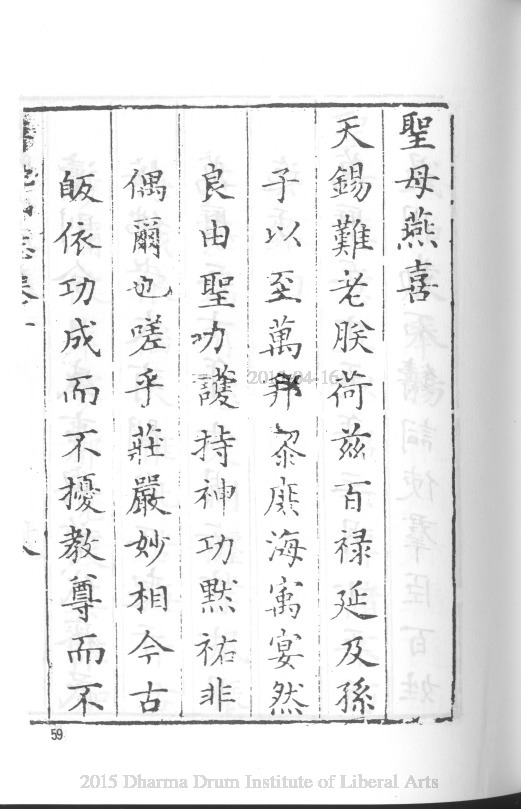 聖母燕喜
天錫難老朕荷茲百祿延及孫
子以至萬邦黎庶海寓宴然
良由聖功護持神功默祐非
偶爾也嗟乎莊嚴妙相今古
皈依功成而不擾教尊而不
59
2015 Dharma Drum Institute of Liberal Arts